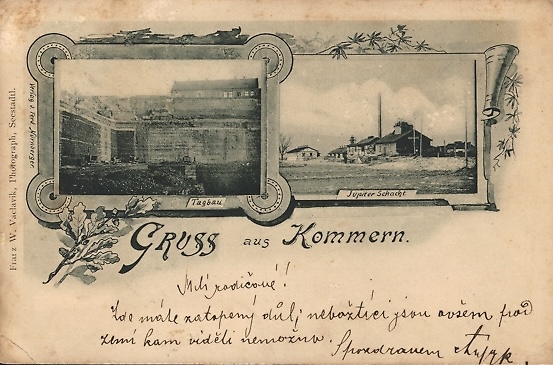 Franz W. Václavik, Photograph, Seestadtl.
Verlag v. Ferd.
Tagbau
Jupiter Schacht
Gruss aus Kommern.
Milí rodičové!
Zde máte zatopený důl, nebožtíci jsou ovšem pod
zemí kam viděti nemožno.
S pozdravem